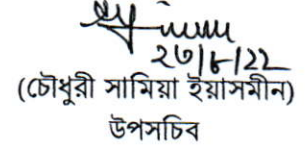 ২৩/৮/২২
(চৌধুরী সামিয়া ইয়াসমীন)
উপসচিব